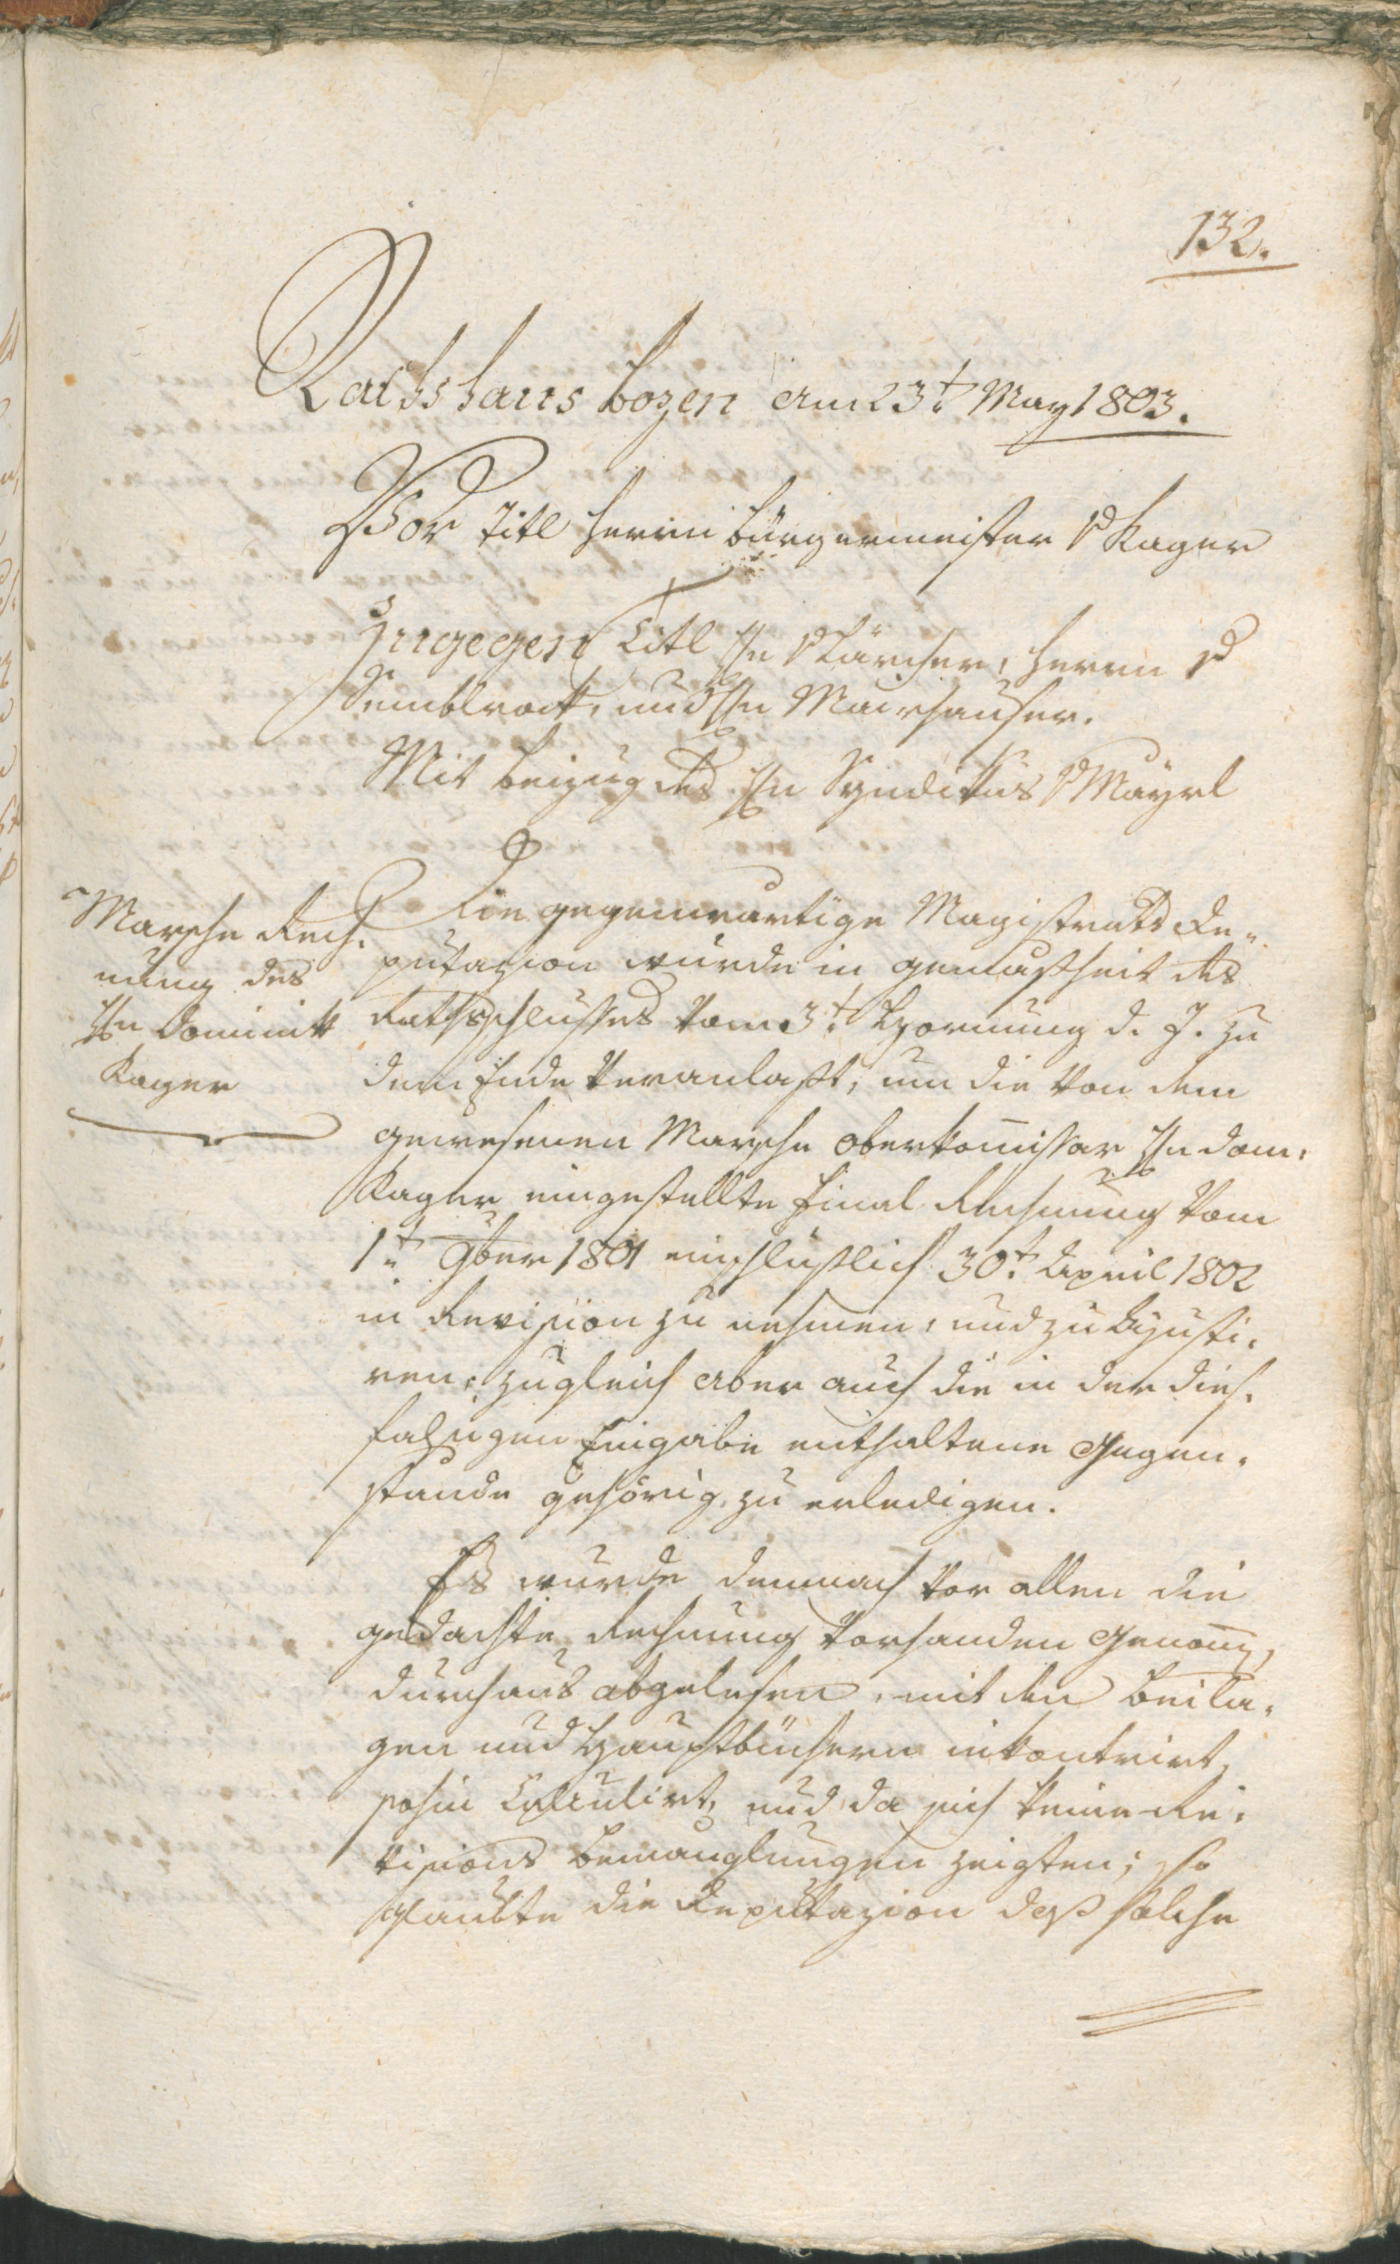 132.
Rathshaus Bozen am 23t. May 1803.
Vor Titl Herrn Bürgermeister v Kager
Ingegen Titl Hn v Larcher, Herrn v
Remblrock, und Hn Mairhauser.
Mit Beizug des Hn Syndikus v Mayrl
Marsche Rech,
nung des
Hn Dominik
Kager
Die gegenwärtige Magistrats De,,
putazion wurde in gemäßheit des
Rathsschlußes vom 3t. Hornung d. J. zu
dem Ende veranlaßt, um die von dem
gewesenen Marsche Oberkom̄issar Hn Dom:
Kager eingestellte Final Rechnung vom
1t. 9ber 1801 einschlüßlich 30t. April 1802
in Revision zu nehmen, und zu Ajusti,
ren, zugleich aber auch die in der dies,
fälligen Eingabe enthaltene Gegen,
stände gehörig zu erledigen.
Es wurde demnach vor allen die
gedachte Rechnung vorhanden Genom̄,
durchaus abgelesen, mit den Beila,
gen und Hauptbüchern inkontrirt,
sohin Calculirt, und da sich keine Re,
visions Bemänglungen zeigten; so
glaubte die Deputazion daß solche